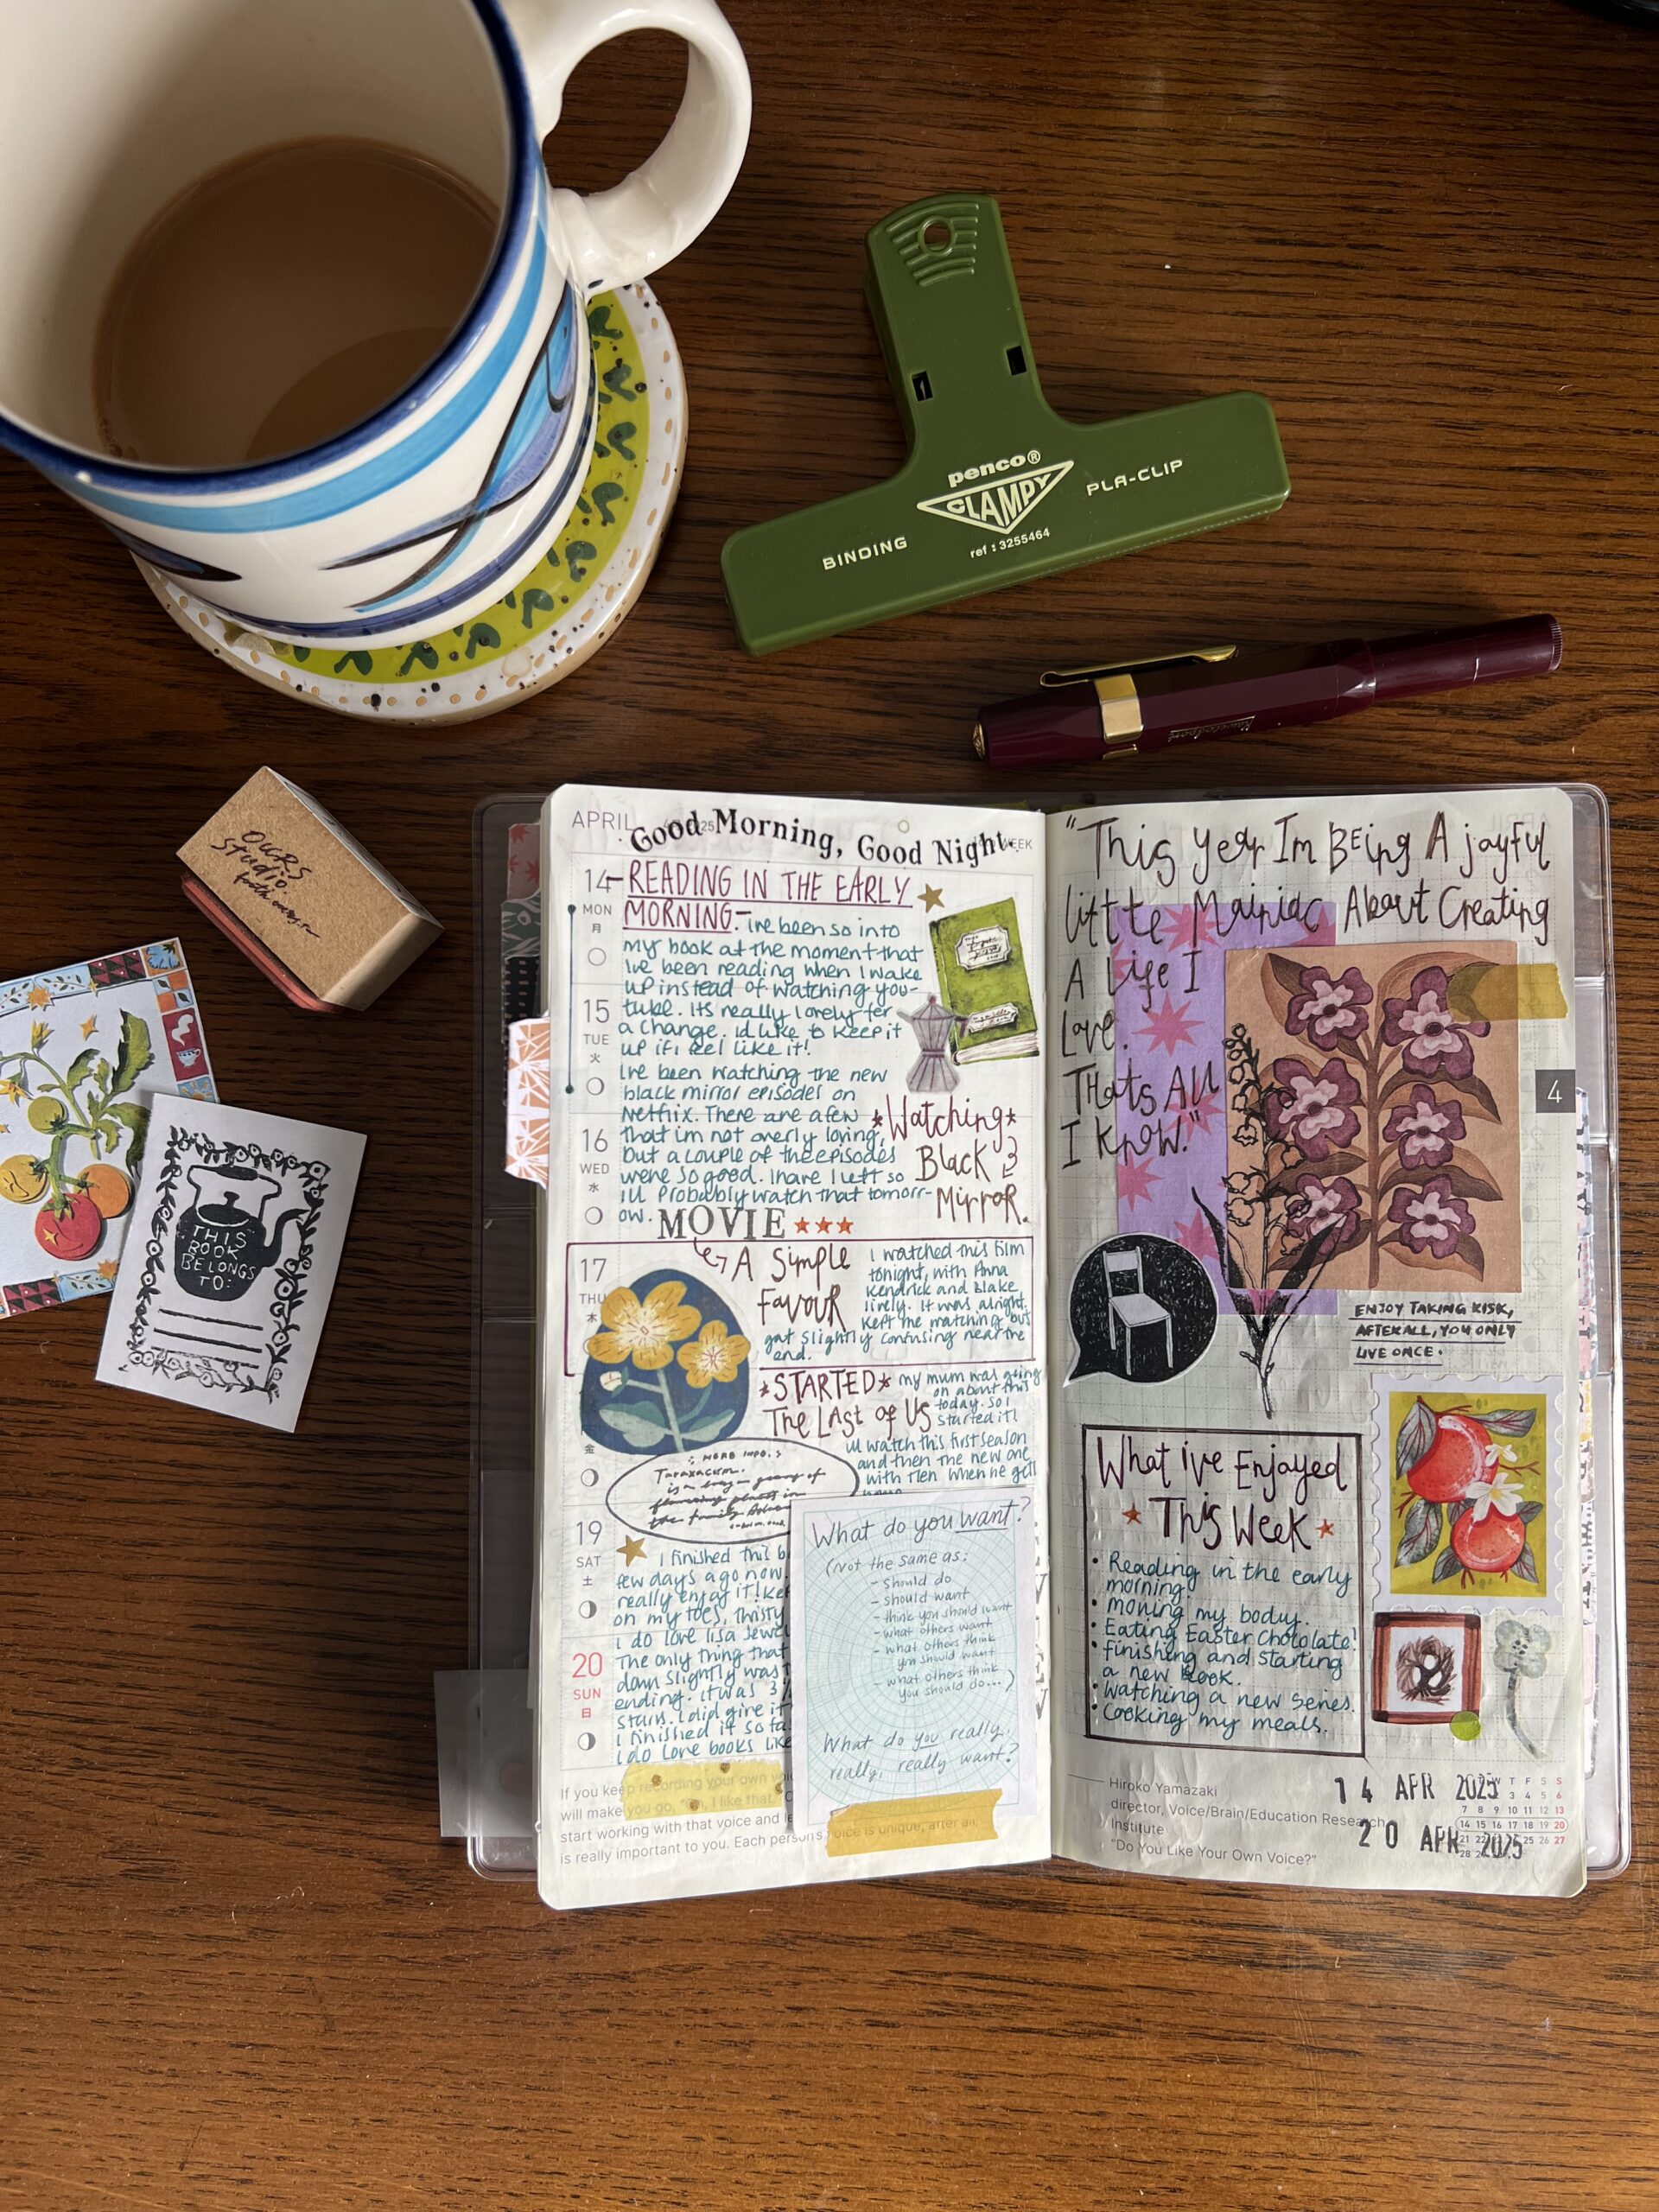 penco®
CLAMPY
BINDING
PLA-CLIP
ref : 3255464
Kaweco Sport
OURS
Studio.
THIS
BOOK
BELONGS
TO:
APRIL
Good Morning, Good Night.
WEEK
14
MON
月
15
TUE
火
16
WED
水
17
THU
木
金
19
SAT
土
20
SUN
日
READING IN THE EARLY
MORNING- ive been so into
my book at the moment that
ive been reading when I wake
up instead of watching you-
tube. Its really lovely for
a change. id like to keep it
up if i feel like it!
Ive been watching the new
black mirror episodes on
Netflix. There are a few
that im not overly loving,
but a couple of the episodes
were so good. I have 1 left so
ill probably watch that tomorr-
ow.
*Watching*
Black
Mirror.
MOVIE
A Simple
Favour
I watched this film
tonight, with Anna
Kendrick and Blake
lively. It was alright.
Kept me watching but
got slightly confusing near the
end.
*STARTED*
The Last of Us
my mum was going
on about this
today. So I
started it!
ill watch this first season
and then the new one
with when he gets
: MORE INFO. :
Taraxacum.
is a large genus of
flowering plants in
the family
I finished this b
few days ago now.
really enjoy it! Ke
on my toes, thirsty
I do love lisa Jewe
The only thing that
down slightly was
ending. it was 3
stars. I did give it
I finished it so fa
I do love books like
What do you want?
(not the same as:
- should do
- should want
- think you should want
- what others want
- what others think
you should want
- what others think
you should do...)
What do you really,
really, really want?
If you keep recording your own voi
will make you go, "Oh, I like that."
start working with that voice and le
is really important to you. Each person's voice is unique, after all.
"This year Im Being A joyful
little Mainiac About Creating
A Life I
Love.
Thats All
I Know."
4
ENJOY TAKING RISK,
AFTER ALL, YOU ONLY
LIVE ONCE.
What ive Enjoyed
This Week
• Reading in the early
morning.
• moving my body.
• Eating Easter chocolate!
• Finishing and starting
a new book.
• Watching a new series.
• Cooking my meals.
Hiroko Yamazaki
director, Voice/Brain/Education Research
Institute
"Do You Like Your Own Voice?"
14 APR 2025
20 APR 2025
W T F S S
3 4 5 6
7 8 9 10 11 12 13
14 15 16 17 18 19 20
21 22 25 26 27
28